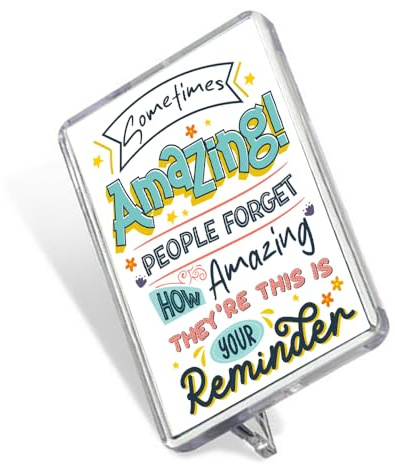 Sometimes
Amazing!
PEOPLE FORGET
HOW Amazing
THEY'RE THIS IS
YOUR
Reminder